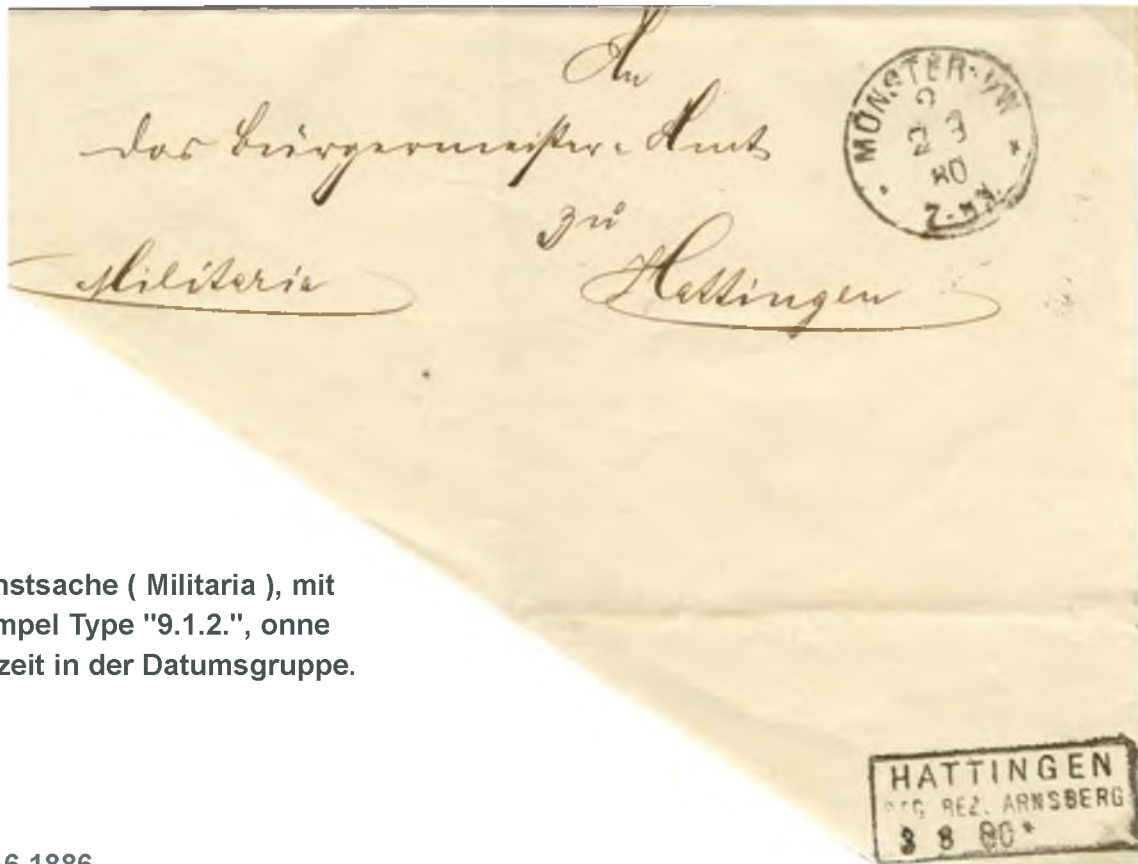 An
das Bürgermeister-Amt
zu
Militaria Hattingen
MÜNSTER
2 3
80
nstsache ( Militaria ), mit
mpel Type "9.1.2.", onne
zeit in der Datumsgruppe.
HATTINGEN
REZ. ARNSBERG
8 80*
6.1886